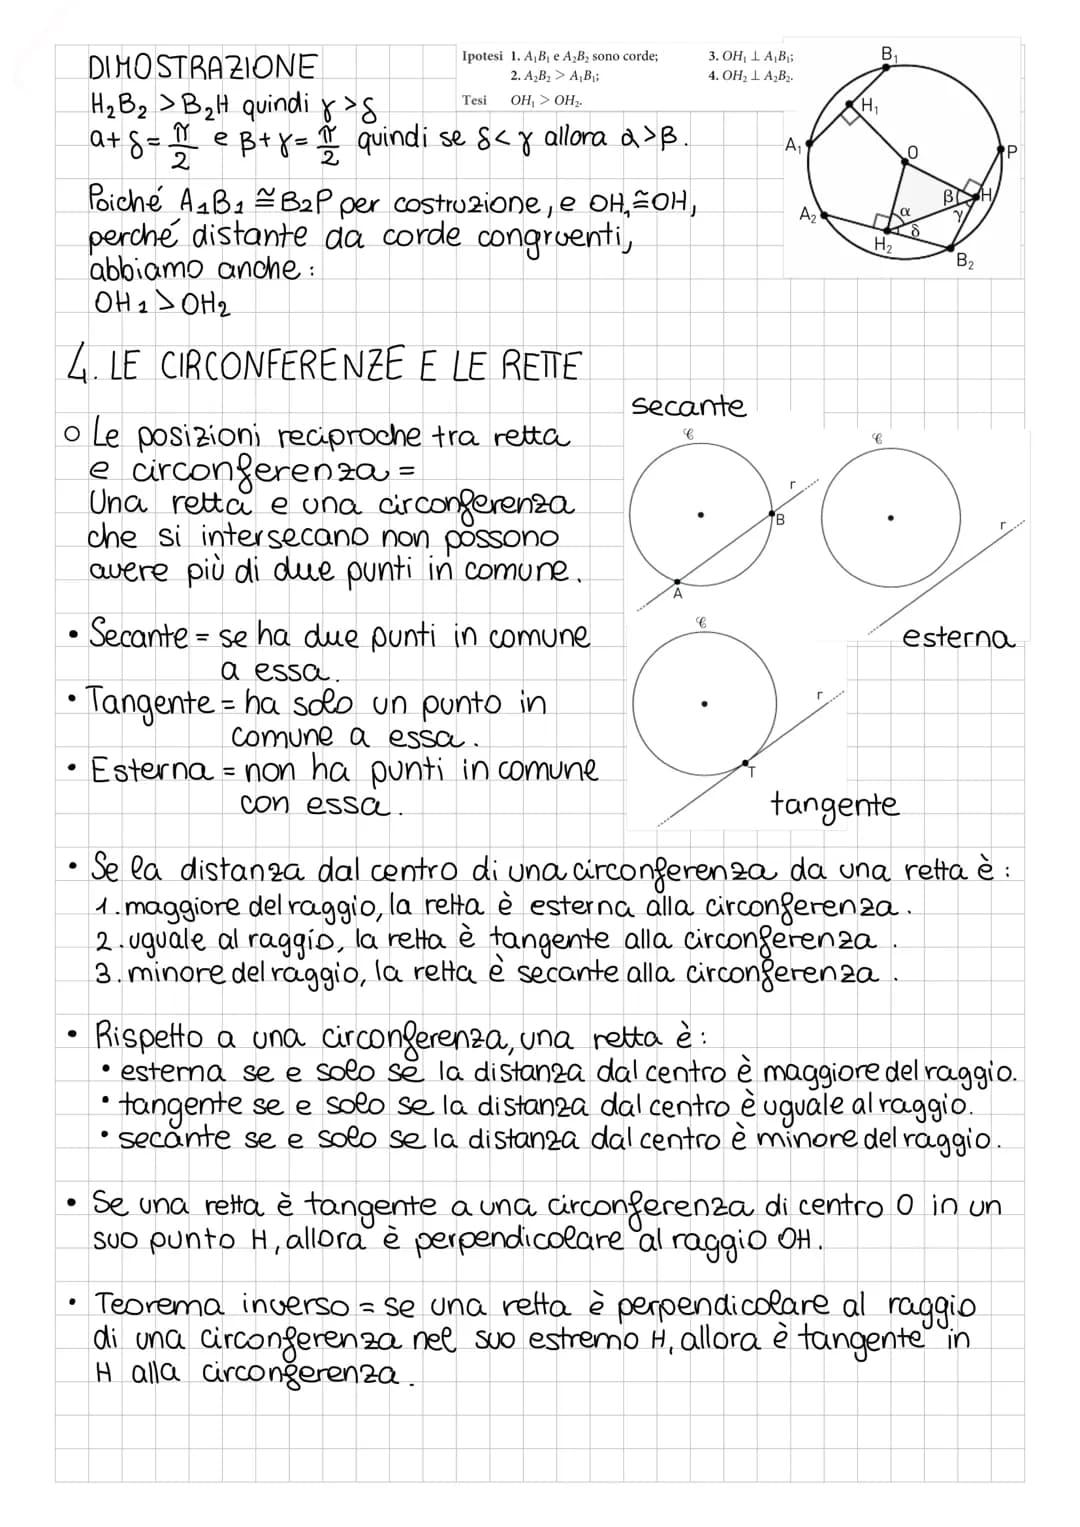 DIMOSTRAZIONE
Ipotesi 1. A₁B₁ e A₂B₂ sono corde;
2. A₂B₂ > A₁B₁;
3. OH₁ ⊥ A₁B₁;
4. OH₂ ⊥ A₂B₂.
Tesi OH₁ > OH₂.
H₂B₂ > B₂H quindi γ > δ
a + δ = π/2 e β + γ = π/2 quindi se δ < γ allora α > β.
Poiché A₁B₁ ≅ B₂P per costruzione, e OH₁ ≅ OH,
perché distante da corde congruenti,
abbiamo anche:
OH₁ > OH₂
B₁
H₁
A₁
O
P
β
H
A₂
α
γ
δ
H₂
B₂
4. LE CIRCONFERENZE E LE RETTE
○ Le posizioni reciproche tra retta
e circonferenza =
Una retta e una circonferenza
che si intersecano non possono
avere più di due punti in comune.
secante
𝒞
r
B
A
𝒞
r
esterna
• Secante = se ha due punti in comune
a essa.
• Tangente = ha solo un punto in
comune a essa.
• Esterna = non ha punti in comune
con essa.
𝒞
r
T
tangente
• Se la distanza dal centro di una circonferenza da una retta è:
1. maggiore del raggio, la retta è esterna alla circonferenza.
2. uguale al raggio, la retta è tangente alla circonferenza.
3. minore del raggio, la retta è secante alla circonferenza.
• Rispetto a una circonferenza, una retta è:
• esterna se e solo se la distanza dal centro è maggiore del raggio.
• tangente se e solo se la distanza dal centro è uguale al raggio.
• secante se e solo se la distanza dal centro è minore del raggio.
• Se una retta è tangente a una circonferenza di centro O in un
suo punto H, allora è perpendicolare al raggio OH.
• Teorema inverso = se una retta è perpendicolare al raggio
di una circonferenza nel suo estremo H, allora è tangente in
H alla circonferenza.